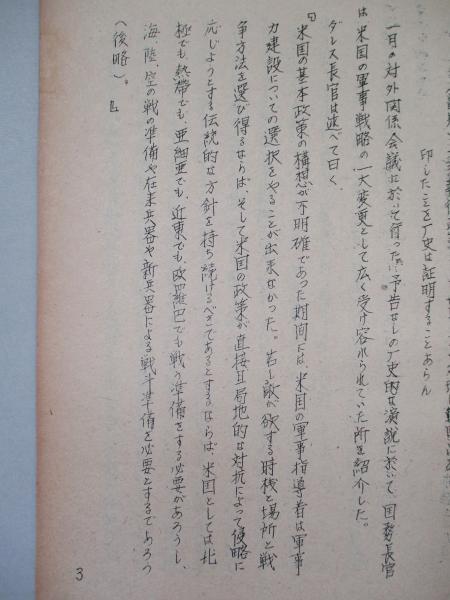 印したことを厂史は証明することあらん
一月の対外関係会議に於いて行った予告なしの厂史的な演説に於いて、国務長官
は米国の軍事戦略の一大変更として広く受け容れられていた所を紹介した。
ダレス長官は述べて曰く、
『米国の基本政策の構想が不明確であった期间には、米国の軍事指導者は軍事
力建設についての選択をやることが出来なかった。若し敵が欲する時機と場所と戦
争方法を選び得るならば、そして米国の政策が直接且局地的な対抗によって侵略に
応じようとする伝統的な方針を持ち続けるべきであるとするならば、米国としては北
極でも、熱帯でも、亜細亜でも、近東でも、欧羅巴でも戦う準備をする必要があろうし、
海、陸、空の戦の準備や在来兵器や新兵器による戦斗準備を必要とするであろう
(後略)。』
3